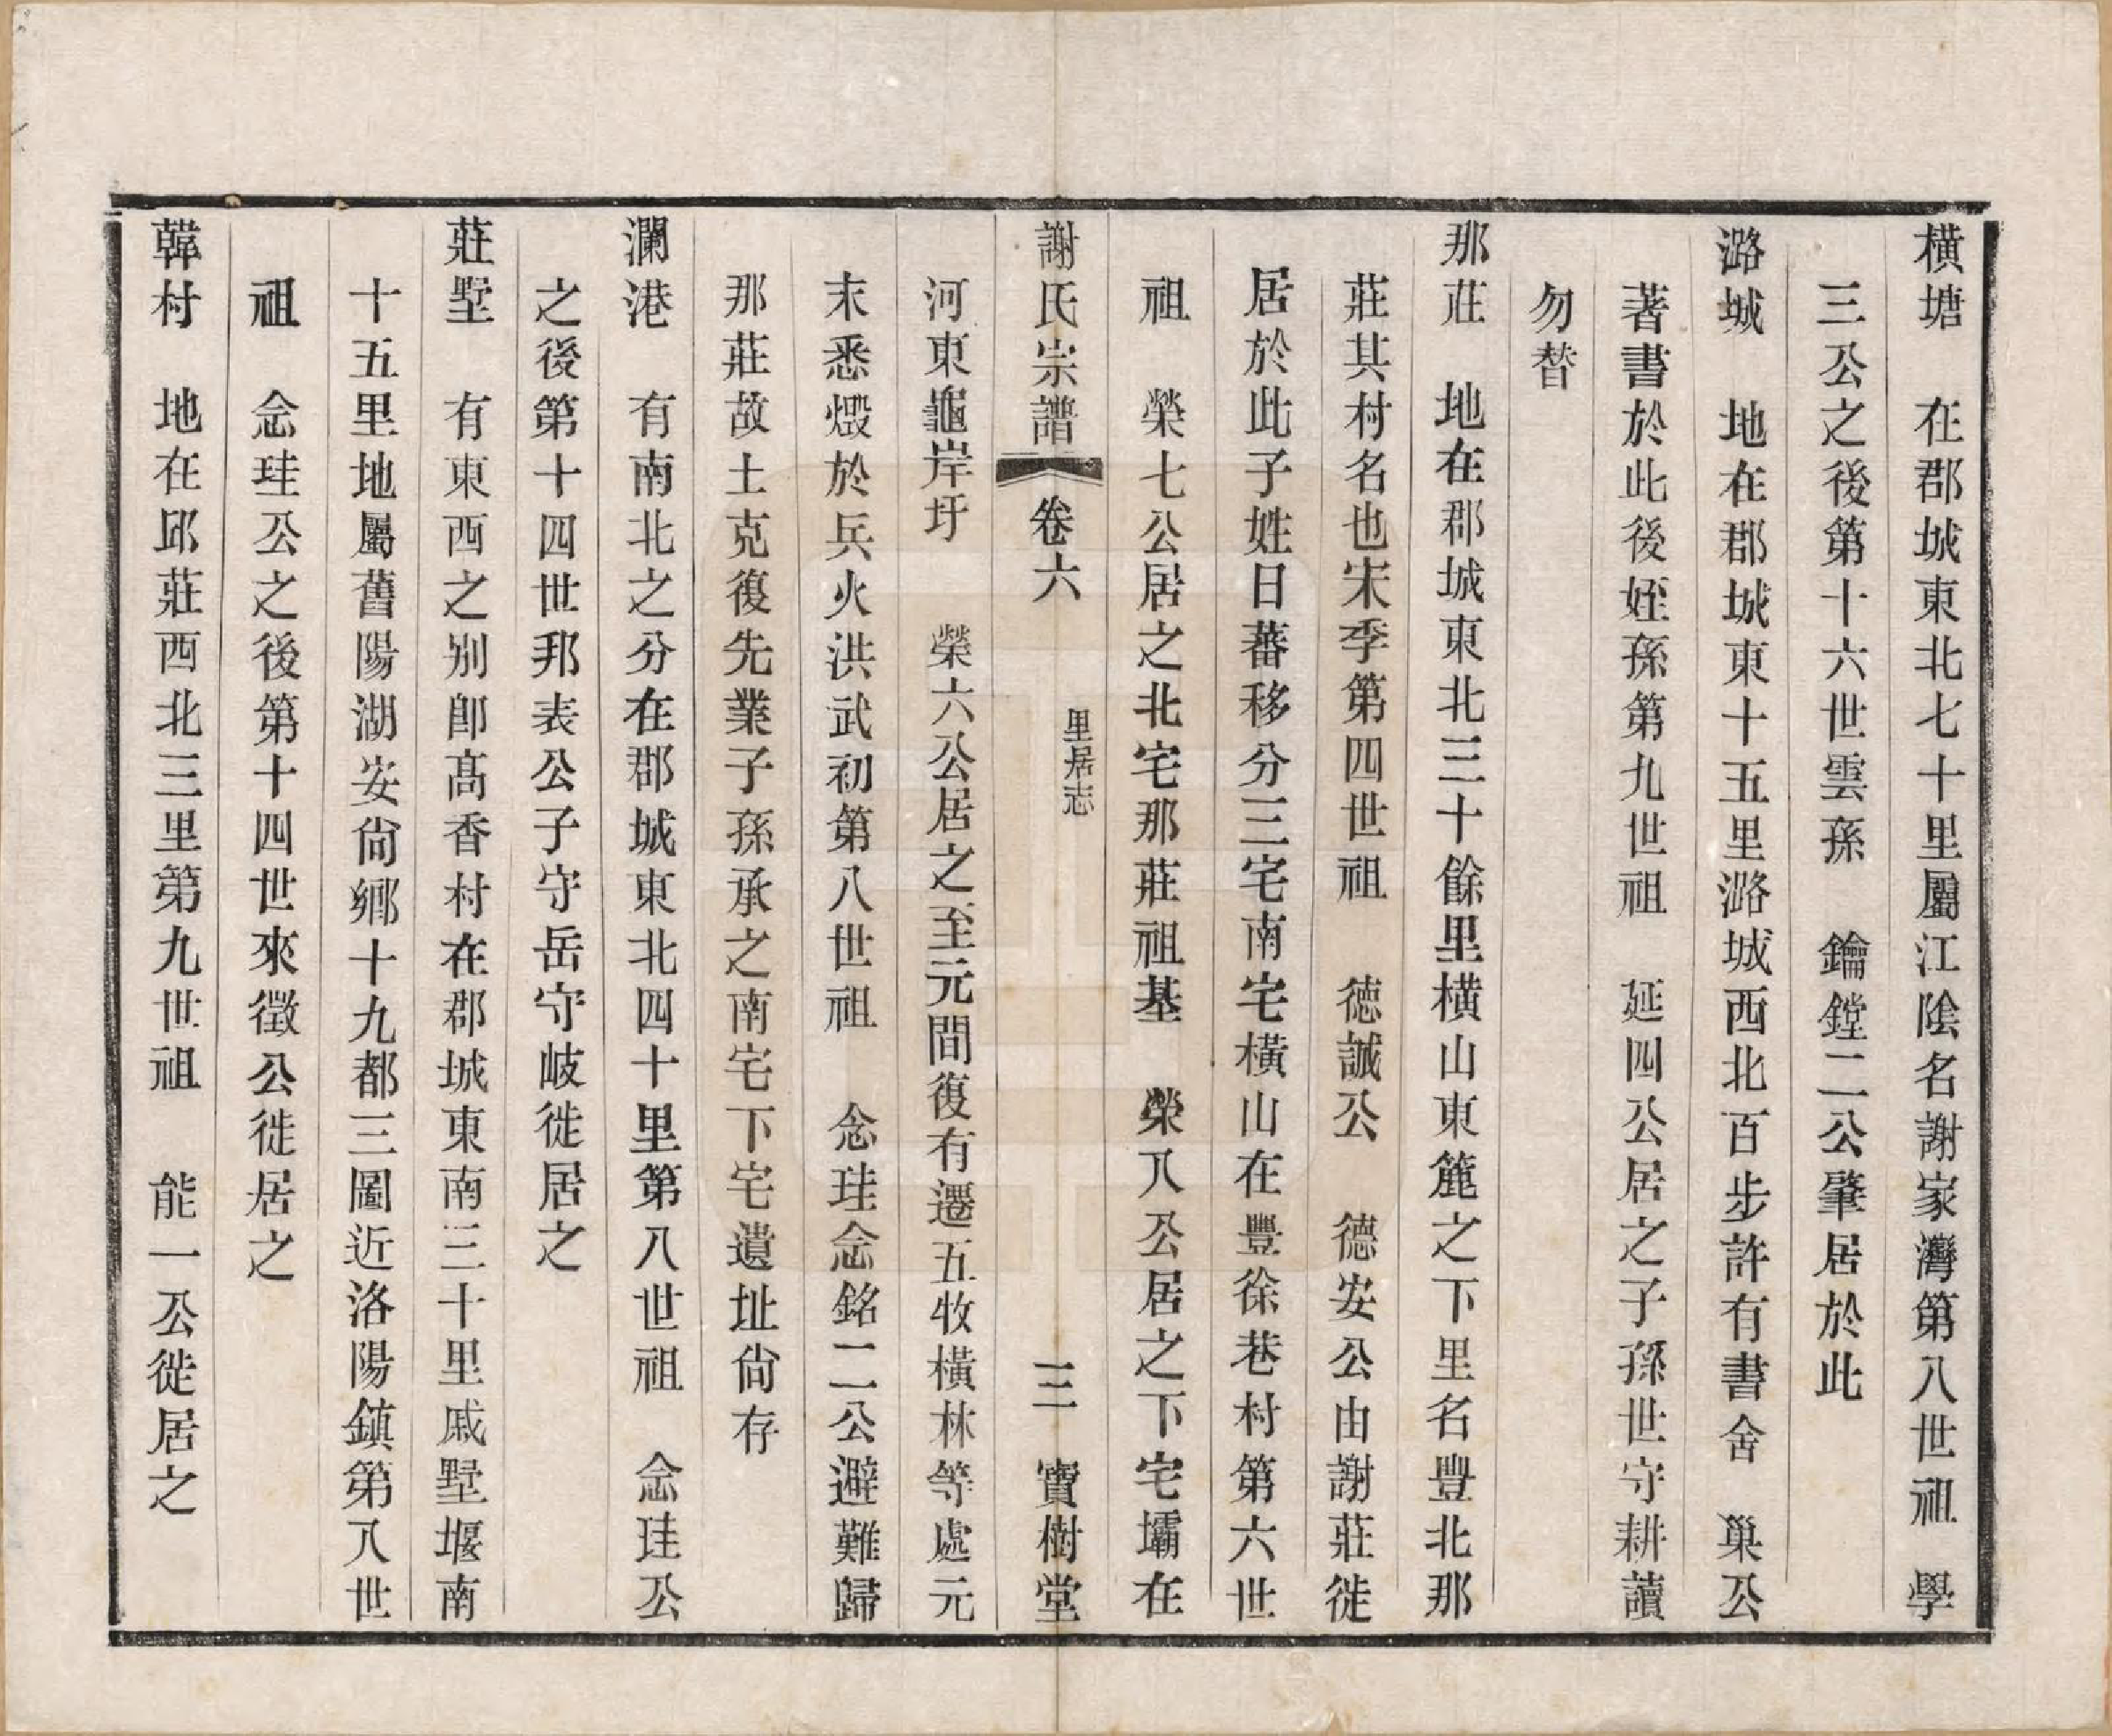 橫塘　在郡城東北七十里屬江陰名謝家灣第八世祖　學
三公之後第十六世雲孫　鑰鏜二公肇居於此
潞城　地在郡城東十五里潞城西北百步許有書舍　巢公
著書於此後姪孫第九世祖　延四公居之子孫世守耕讀
勿替
那莊　地在郡城東北三十餘里橫山東簏之下里名豐北那
莊其村名也宋季第四世祖　德誠公　德安公由謝莊徙
居於此子姓日蕃移分三宅南宅橫山在豐徐巷村第六世
祖　榮七公居之北宅那莊祖基　榮八公居之下宅壩在
謝氏宗譜　卷六　里居志　三　寶樹堂
河東龜岸圩　榮六公居之至元間復有遷五牧橫林等處元
末悉燬於兵火洪武初第八世祖　念珪念銘二公避難歸
那莊故土克復先業子孫承之南宅下宅遺址尙存
瀾港　有南北之分在郡城東北四十里第八世祖　念珪公
之後第十四世邦表公子守岳守岐徙居之
莊墅　有東西之别卽髙香村在郡城東南三十里戚墅堰南
十五里地屬舊陽湖安尙鄕十九都三圖近洛陽鎮第八世
祖　念珪公之後第十四世來徵公徙居之
韓村　地在邱莊西北三里第九世祖　能一公徙居之